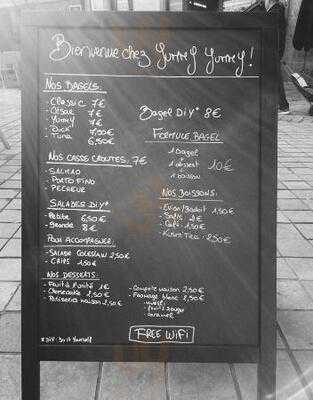 Bienvenue chez Yumey Yumey!
NOS BAGELS:
- Classic 7€
- César 7€
- Yumey 7€
- Duck 7,90€
- Tuna 6,50€
Bagel DiY* 8€
FORMULE BAGEL
1 bagel
1 dessert 10€
1 boisson
NOS CASSE CROUTES: 7€
- SALMAO
- PORTO FINO
- PECHEUR
SALADES DiY*
- Petite 6,50€
- Grande 8€
NOS BOISSONS:
- Evian/Badoit 1,50€
- Soft 2€
- Café 1,50€
- Kusmi Tea: 2,50€
POUR ACCOMPAGNER:
- SALADE COLESLAW 2,50€
- CHIPS 1,50€
NOS DESSERTS:
- Fruit à l'unité 1€
- Cheesecake 3,50€
- Patisserie maison 2,50€
- Compote maison 2,50€
- Fromage blanc 2,50€
- miel
- fruits rouges
- caramel
*DiY: Do it Yourself
FREE WIFI